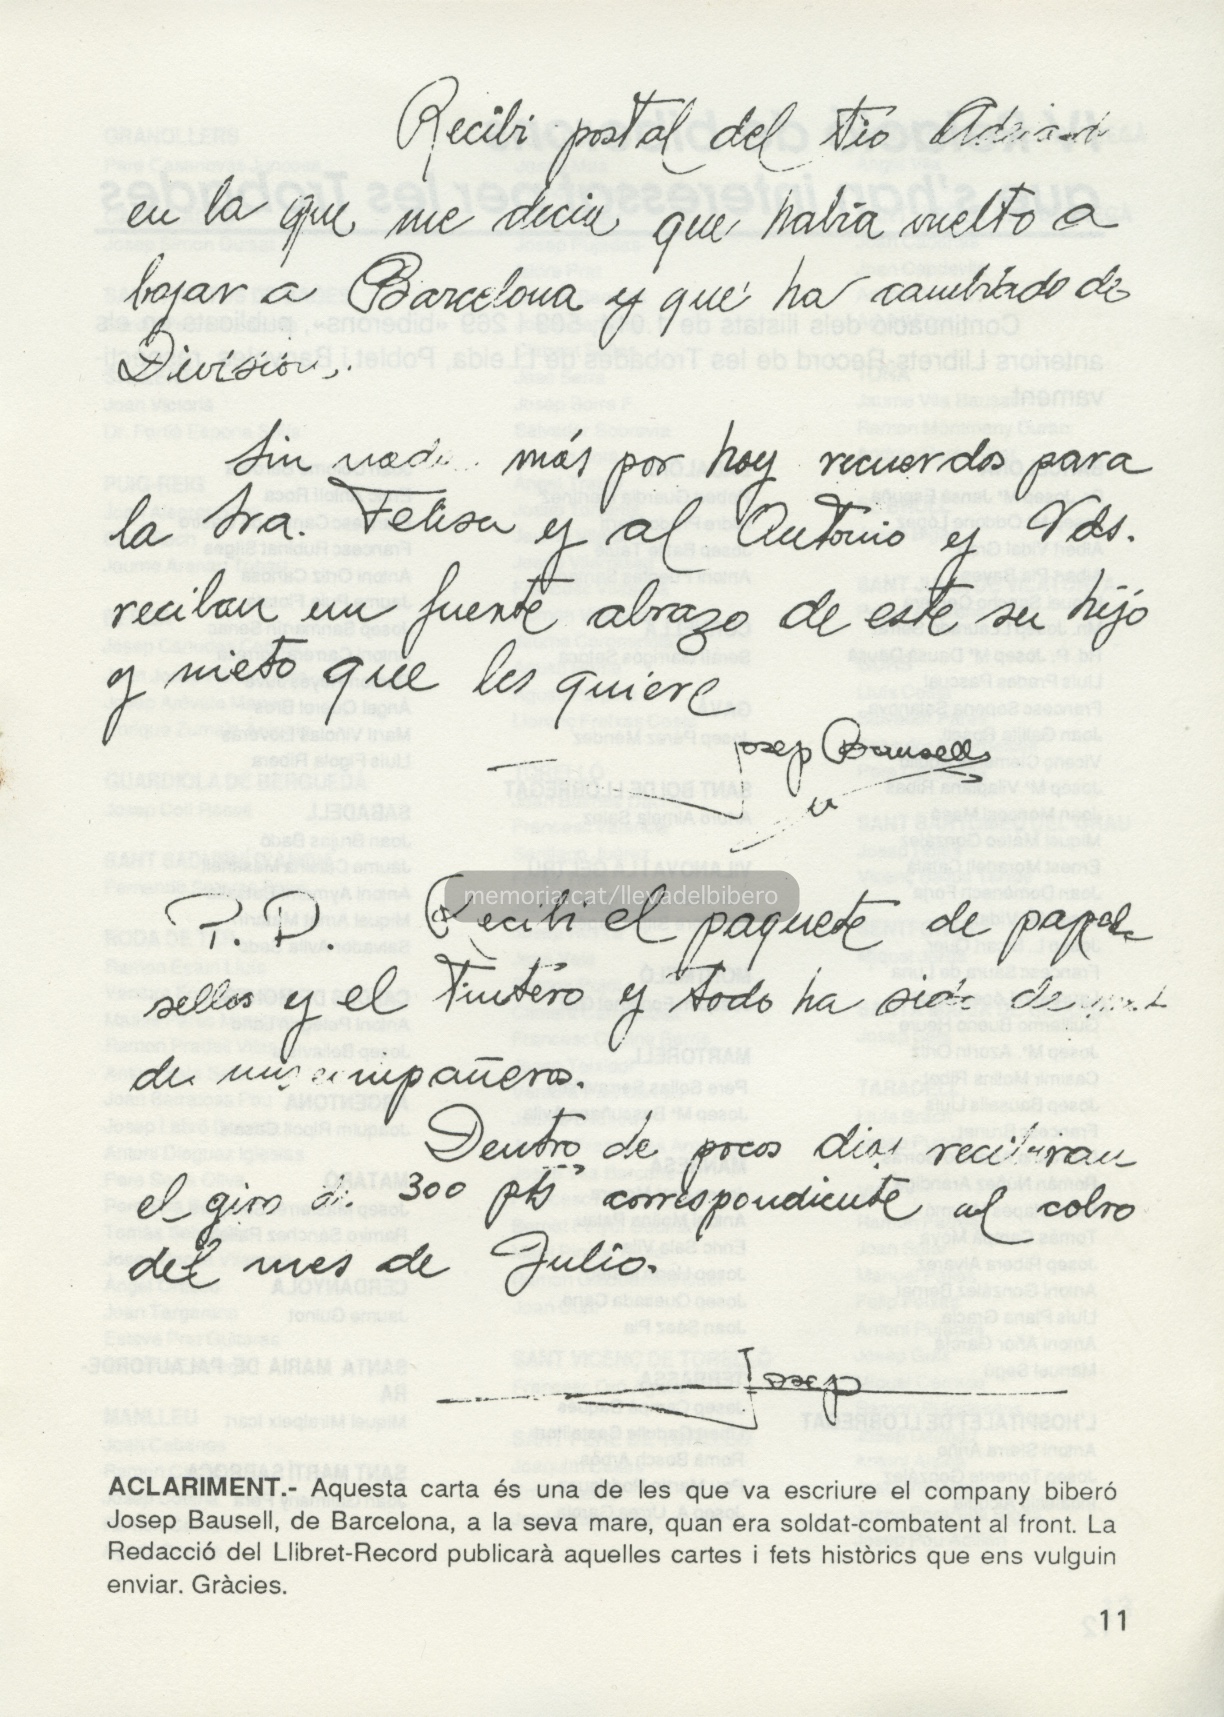 Recibi postal del tio
en la que me decia que habia vuelto a
bajar a Barcelona y que ha cambiado de
División.
Sin nada más por hoy recuerdos para
la Sra. Felisa y al Antonio y Vds.
reciban un fuerte abrazo de este su hijo
y nieto que les quiere
Josep Bausells
memoria.cat/llevadelbibero
P.D. Recibi el paquete de papel
sellos y el tintero y todo ha sido
de mis compañeros.
Dentro de pocos dias recibiran
el giro de 300 pts correspondiente al cobro
del mes de Julio.
Josep
ACLARIMENT.- Aquesta carta és una de les que va escriure el company biberó
Josep Bausell, de Barcelona, a la seva mare, quan era soldat-combatent al front. La
Redacció del Llibret-Record publicarà aquelles cartes i fets històrics que ens vulguin
enviar. Gràcies.
11